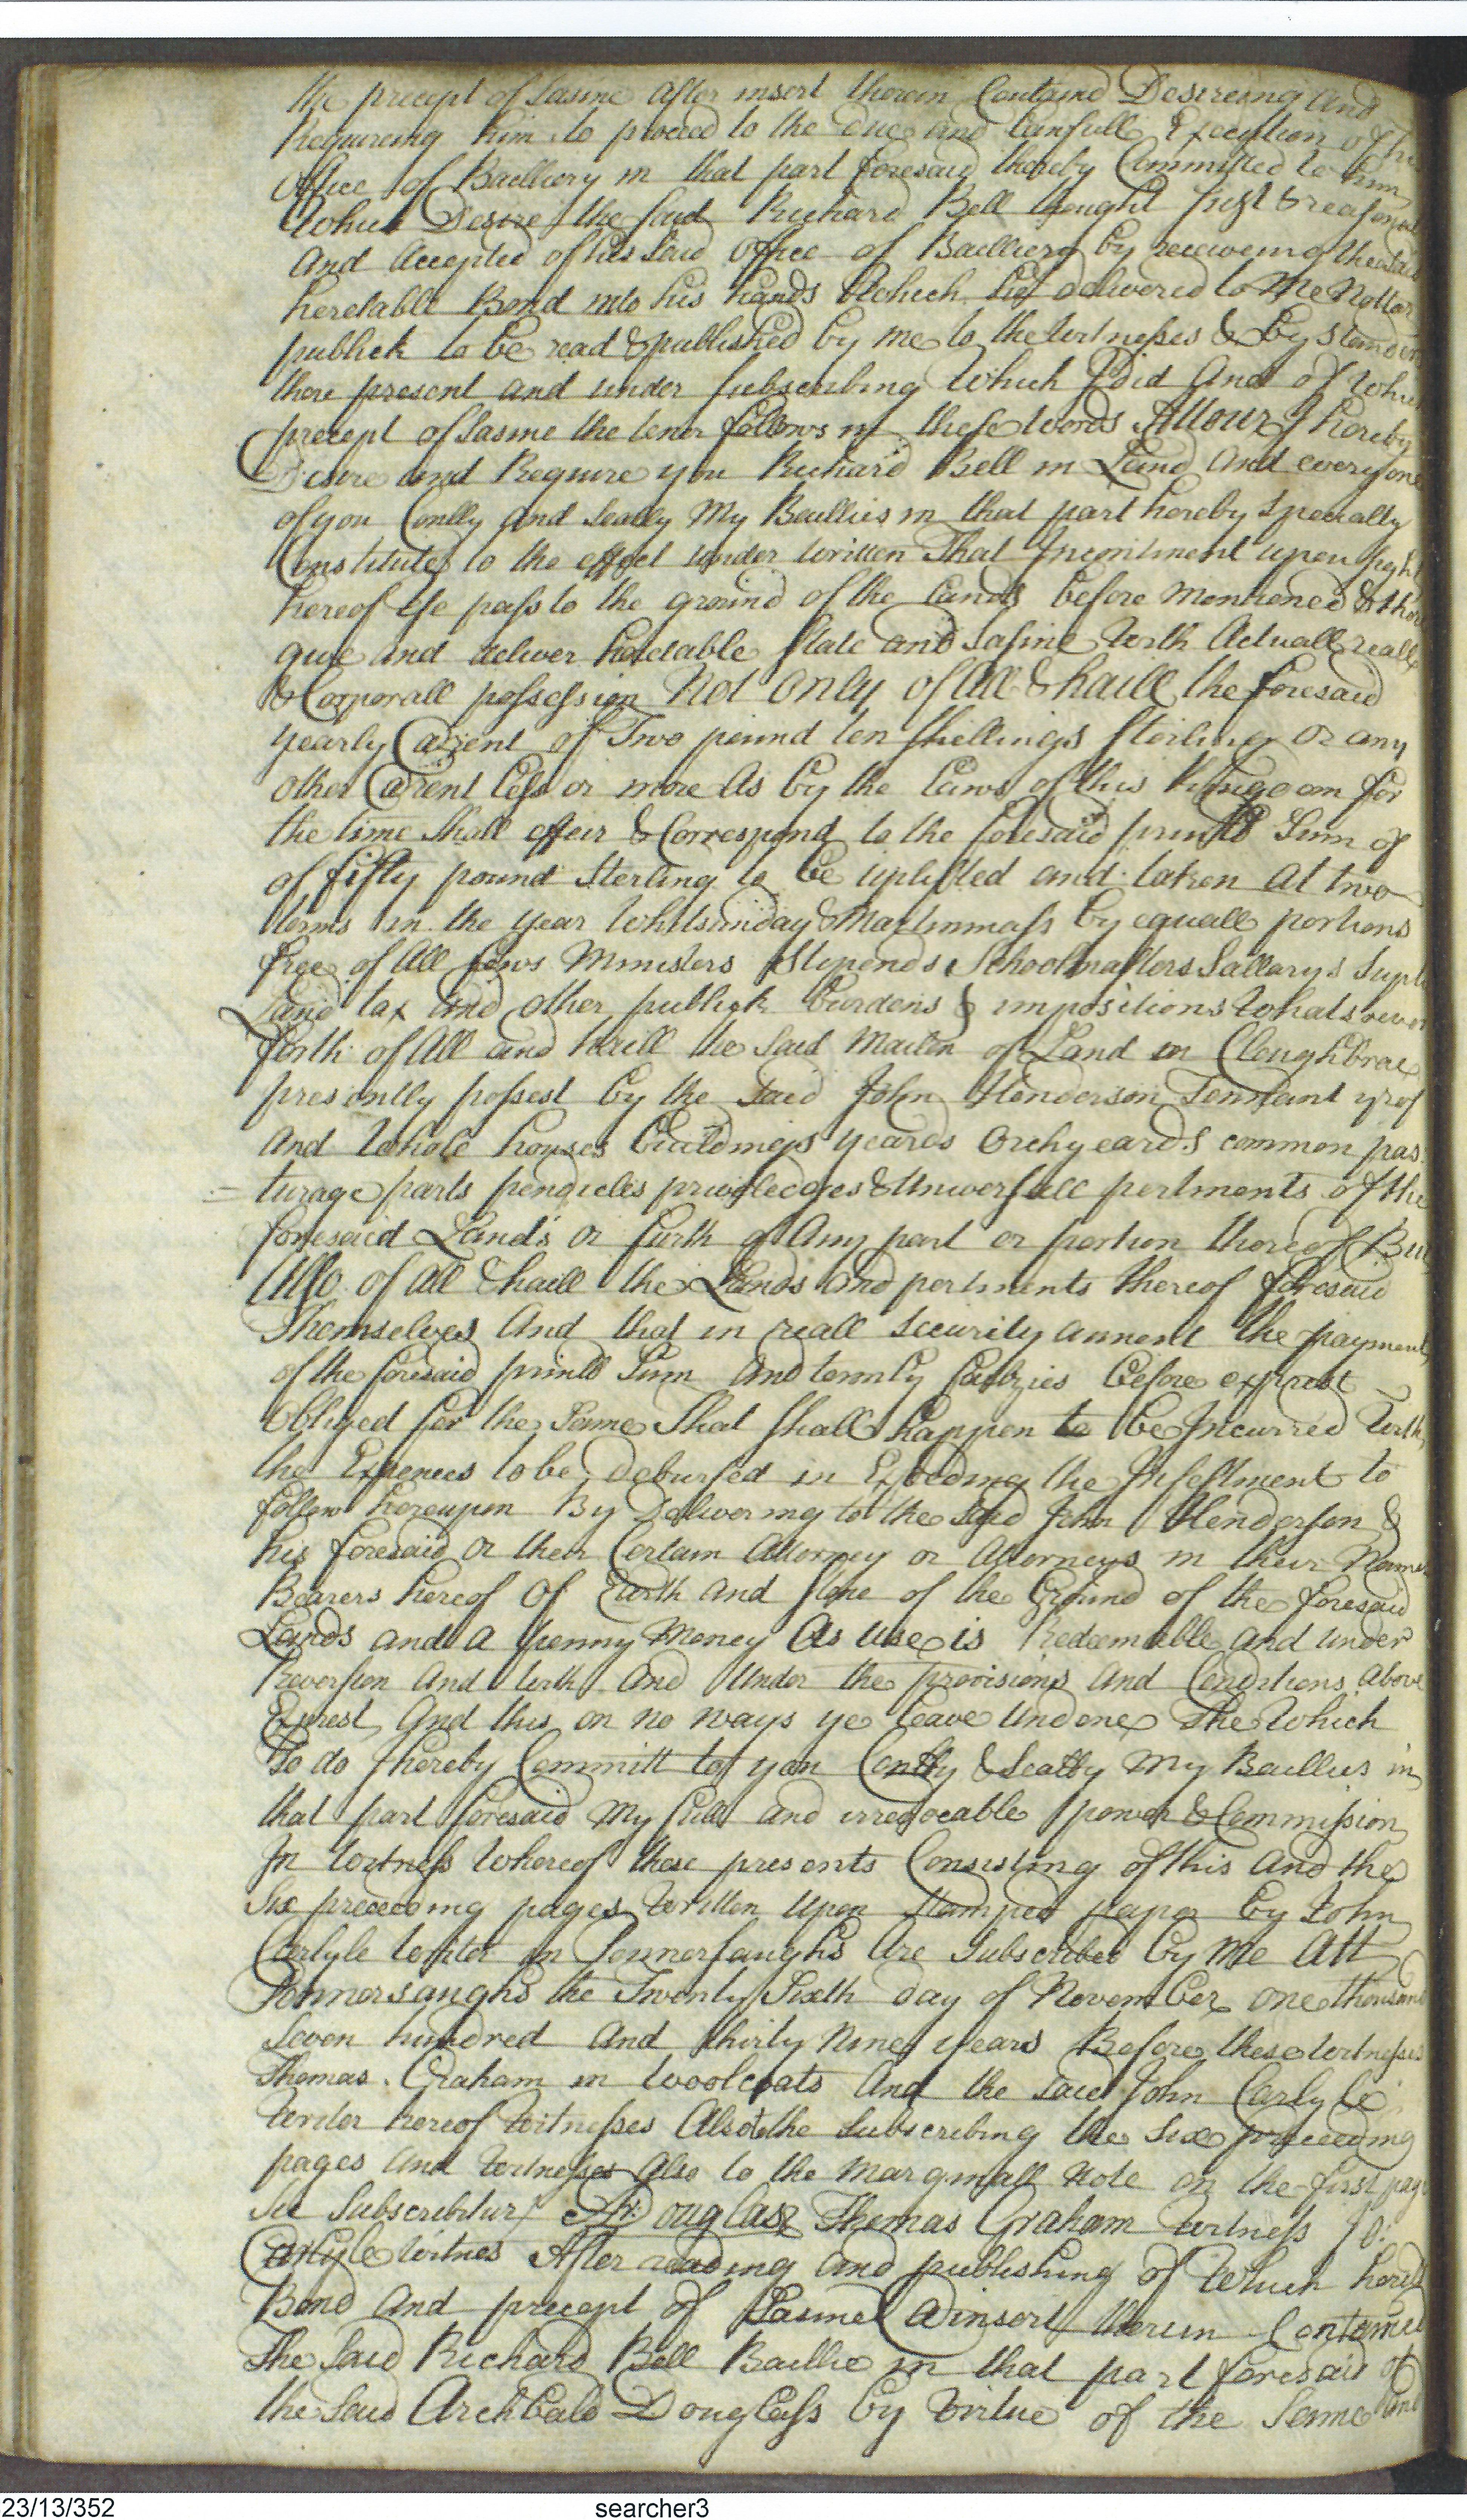 the precept of Sasine after insert therein Contained Desireing and
Requireing him to proceed to the due and Lawfull Execution of his
Office of Bailliery in that part foresaid thereby Committed to him
Which Desire the said Richard Bell thought Just & reasonable
And Accepted of his said Office of Bailliery by receiveing the said
heretable Bond into his hands Which he delivered to Me Nottar
publick to be read & published by me to the Witnesses & by standers
there present and under subscribing Which I Did And of Which
precept of Sasine the tenor follows in these Words Attour I hereby
Desire and Require you Richard Bell in Land And everyone
of you Conlly and Seally My Baillies in that part hereby Specially
Constitute to the effect under written That Incontinent upon sight
hereof Ye pass to the ground of the Lands before Mentioned & there
give and deliver heretable State and Sasine With Actuall reall
& Corporall possession Not only of All & haill the foresaid
yearly @rent of Two pound ten Shillings Sterling Or any
other @rent Less or more As by the Laws of this Kingdom for
the time Shall effeir & Correspond to the foresaid prinll Sum of
of fifty pound Sterling to be uplifted and taken At two
terms in the year Whitsunday & Martinmass by equall portions
free of All fews Ministers Stipends Schoolmasters Sallarys Suply
Land tax and other publick burdens & impositions Whatsoever
forth of All and haill the said Mailen of Land in Cleughbrae
presently possest by the Said John Henderson Tennant yrof
And Whole houses buildings yeards Orchyeards common pas
turage parts pendicles priviledges & Universall pertinents of the
foresaid Lands Or furth of Any part or portion thereof But
Also of All & haill the Lands and pertinents thereof foresaid
Themselves And that in reall Security annent the payment
of the foresaid prinll Sum And termly failzies before exprest
Obliged for the Same That shall happen to be Incurred With
the Expences to be Debursed in Expeding the Infeftment to
follow hereupon By Delivering to the Said John Henderson &
his foresaid Or their Certain Attorney or Attorneys in their Names
Bearers hereof Of Earth and Stone of the Ground of the foresaid
Lands and a penny Money As use is Redeemable and under
Reversion And With And Under the provisions And Conditions Above
Exprest And this on no ways ye Leave Undone The Which
To do I hereby Committ to you Conlly & Seally My Baillies in
that part foresaid My full and irrevocable power & Commission
In Witness Whereof these presents Consisting of this And the
Six preceeding pages Written Upon Stamped paper by John
Carlyle Writer in Tonnersaughs Are Subscribed by Me Att
Tonnersaughs the Twenty Sixth day of November One thousand
Seven hundred And thirty Nine years Before these Witnesses
Thomas Graham in Woolcoats And the said John Carlyle
Writer hereof Witnesses Also to the Subscribing the Six preceeding
pages And Witnesses Also to the Marginall Note on the first page
Sic Subscribitur Ar: Douglass Thomas Graham Witness Jo:
Carlyle Witnes After reading and publishing of Which heretable
Bond And precept of Sasine @insert therein Contained
The Said Richard Bell Baillie in that part foresaid of
the Said Archbald Douglass by Virtue of the Same And
23/13/352 searcher3